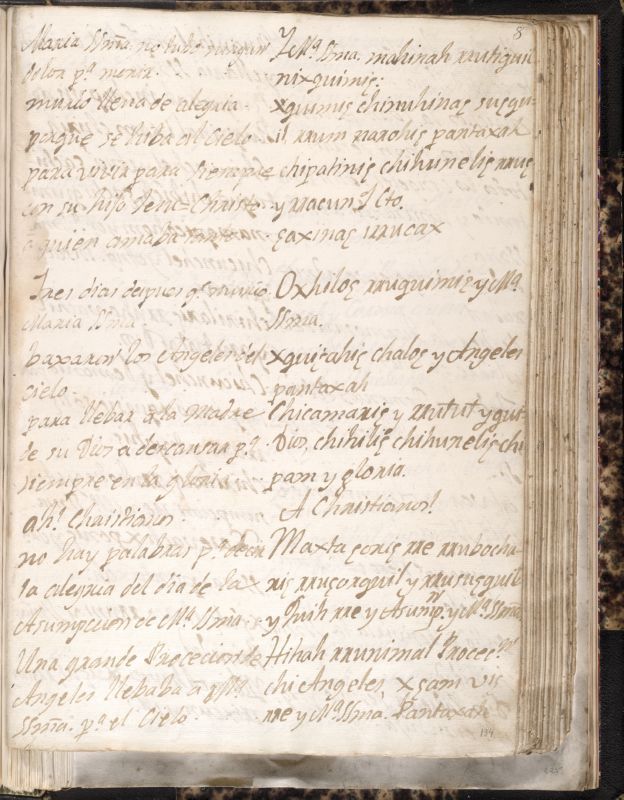 8
Maria SSma. no tubo ningun
dolor pa. morir.
murio llena de alegria
porque se hiba al Cielo
para vivir para siempre
con su hijo Jesu-Christo
a quien amaba
Tres dias despues qe. murio
Maria SSma
baxaron los Angeles del
cielo
para llebar a la Madre
de su Dios a descansar pa.
siempre en la gloria
ah! Chaistianos
no hay palabras pa. decir
la alegria del dia de la
Asumpcion de Ma. SSma
Una grande Procecion de
Angeles llebaba a Ma.
SSma. pa. el Cielo
y Ma. SSma. mahinah rrutiquil
nixquimiς:
xquimiς chinuhinaς susqui
il rrum rrarchiς pantaxah
chipatiniς chihuneliς rruς
y rracun J Cto.
ςaxinaς rrucax
Oxhiloς rruquimiς y Ma.
SSma.
xquiςahiς chaloς y Angeles
pantaxah
Chicamariς y rrutut y qui
Dios, chihiliς chihuneliς chi
pam y gloria.
A Christianos!
Maxta ςoriς rre rrubocha
riς rruςorquil y rrususquil
y Quih rre y Asump.n y Ma. SSma.
Hihah rrunimal Proceςn
chi Angeles, xςam viς
rre y Ma. SSma. Pantaxah
134